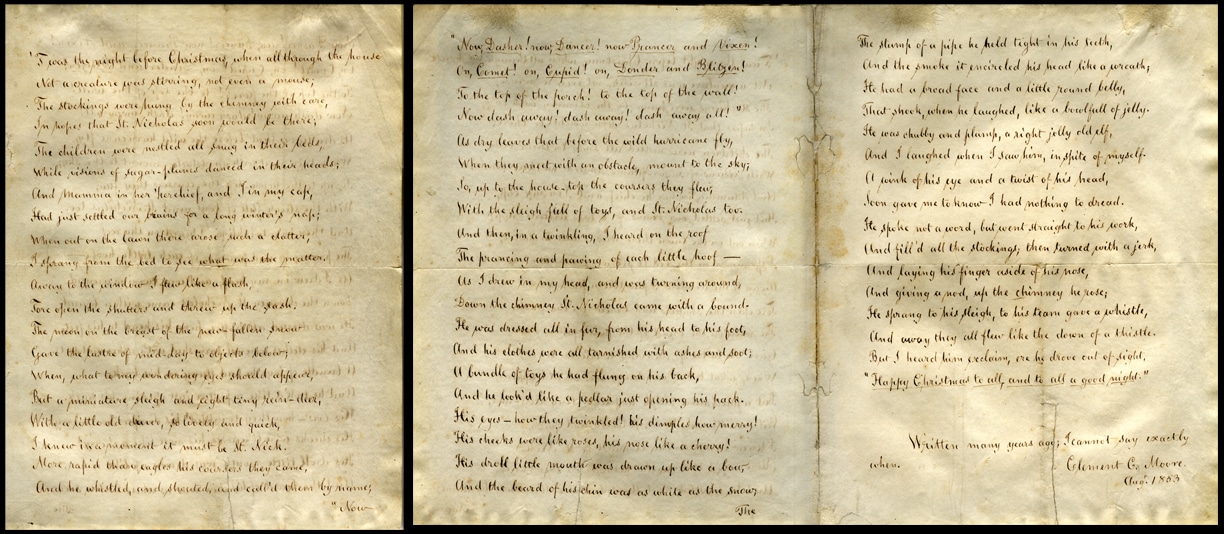 'Twas the night before Christmas, when all through the house
Not a creature was stirring, not even a mouse;
The stockings were hung by the chimney with care,
In hopes that St. Nicholas soon would be there;
The children were nestled all snug in their beds,
While visions of sugar-plums danced in their heads;
And Mamma in her 'kerchief, and I in my cap,
Had just settled our brains for a long winter's nap;
When out on the lawn there arose such a clatter,
I sprang from the bed to see what was the matter.
Away to the window I flew like a flash,
Tore open the shutters and threw up the sash.
The moon on the breast of the new-fallen snow
Gave the lustre of mid-day to objects below;
When, what to my wondering eyes should appear,
But a miniature sleigh and eight tiny rein-deer,
With a little old driver, so lively and quick,
I knew in a moment it must be St. Nick.
More rapid than eagles his coursers they came,
And he whistled, and shouted, and call'd them by name;
"Now
"Now, Dasher! now, Dancer! now Prancer and Vixen!
On, Comet! on, Cupid! on, Donder and Blitzen!
To the top of the porch! to the top of the wall!
Now dash away! dash away! dash away all!"
As dry leaves that before the wild hurricane fly,
When they meet with an obstacle, mount to the sky;
So, up to the house-top the coursers they flew,
With the sleigh full of toys, and St. Nicholas too.
And then, in a twinkling, I heard on the roof
The prancing and pawing of each little hoof —
As I drew in my head, and was turning around,
Down the chimney St. Nicholas came with a bound.
He was dressed all in fur, from his head to his foot,
And his clothes were all tarnished with ashes and soot;
A bundle of toys he had flung on his back,
And he look'd like a pedlar just opening his pack.
His eyes – how they twinkled! his dimples how merry!
His cheeks were like roses, his nose like a cherry!
His droll little mouth was drawn up like a bow,
And the beard of his chin was as white as the snow;
The
The stump of a pipe he held tight in his teeth,
And the smoke it encircled his head like a wreath;
He had a broad face and a little round belly,
That shook, when he laughed, like a bowlfull of jelly.
He was chubby and plump, a right jolly old elf,
And I laughed when I saw him, in spite of myself.
A wink of his eye and a twist of his head,
Soon gave me to know I had nothing to dread.
He spoke not a word, but went straight to his work,
And fill'd all the stockings; then turned with a jerk,
And laying his finger aside of his nose,
And giving a nod, up the chimney he rose;
He sprang to his sleigh, to his team gave a whistle,
And away they all flew like the down of a thistle.
But I heard him exclaim, ere he drove out of sight,
"Happy Christmas to all, and to all a good night."
Written many years ago; I cannot say exactly
when.
Clement C. Moore.
Aug. 1853